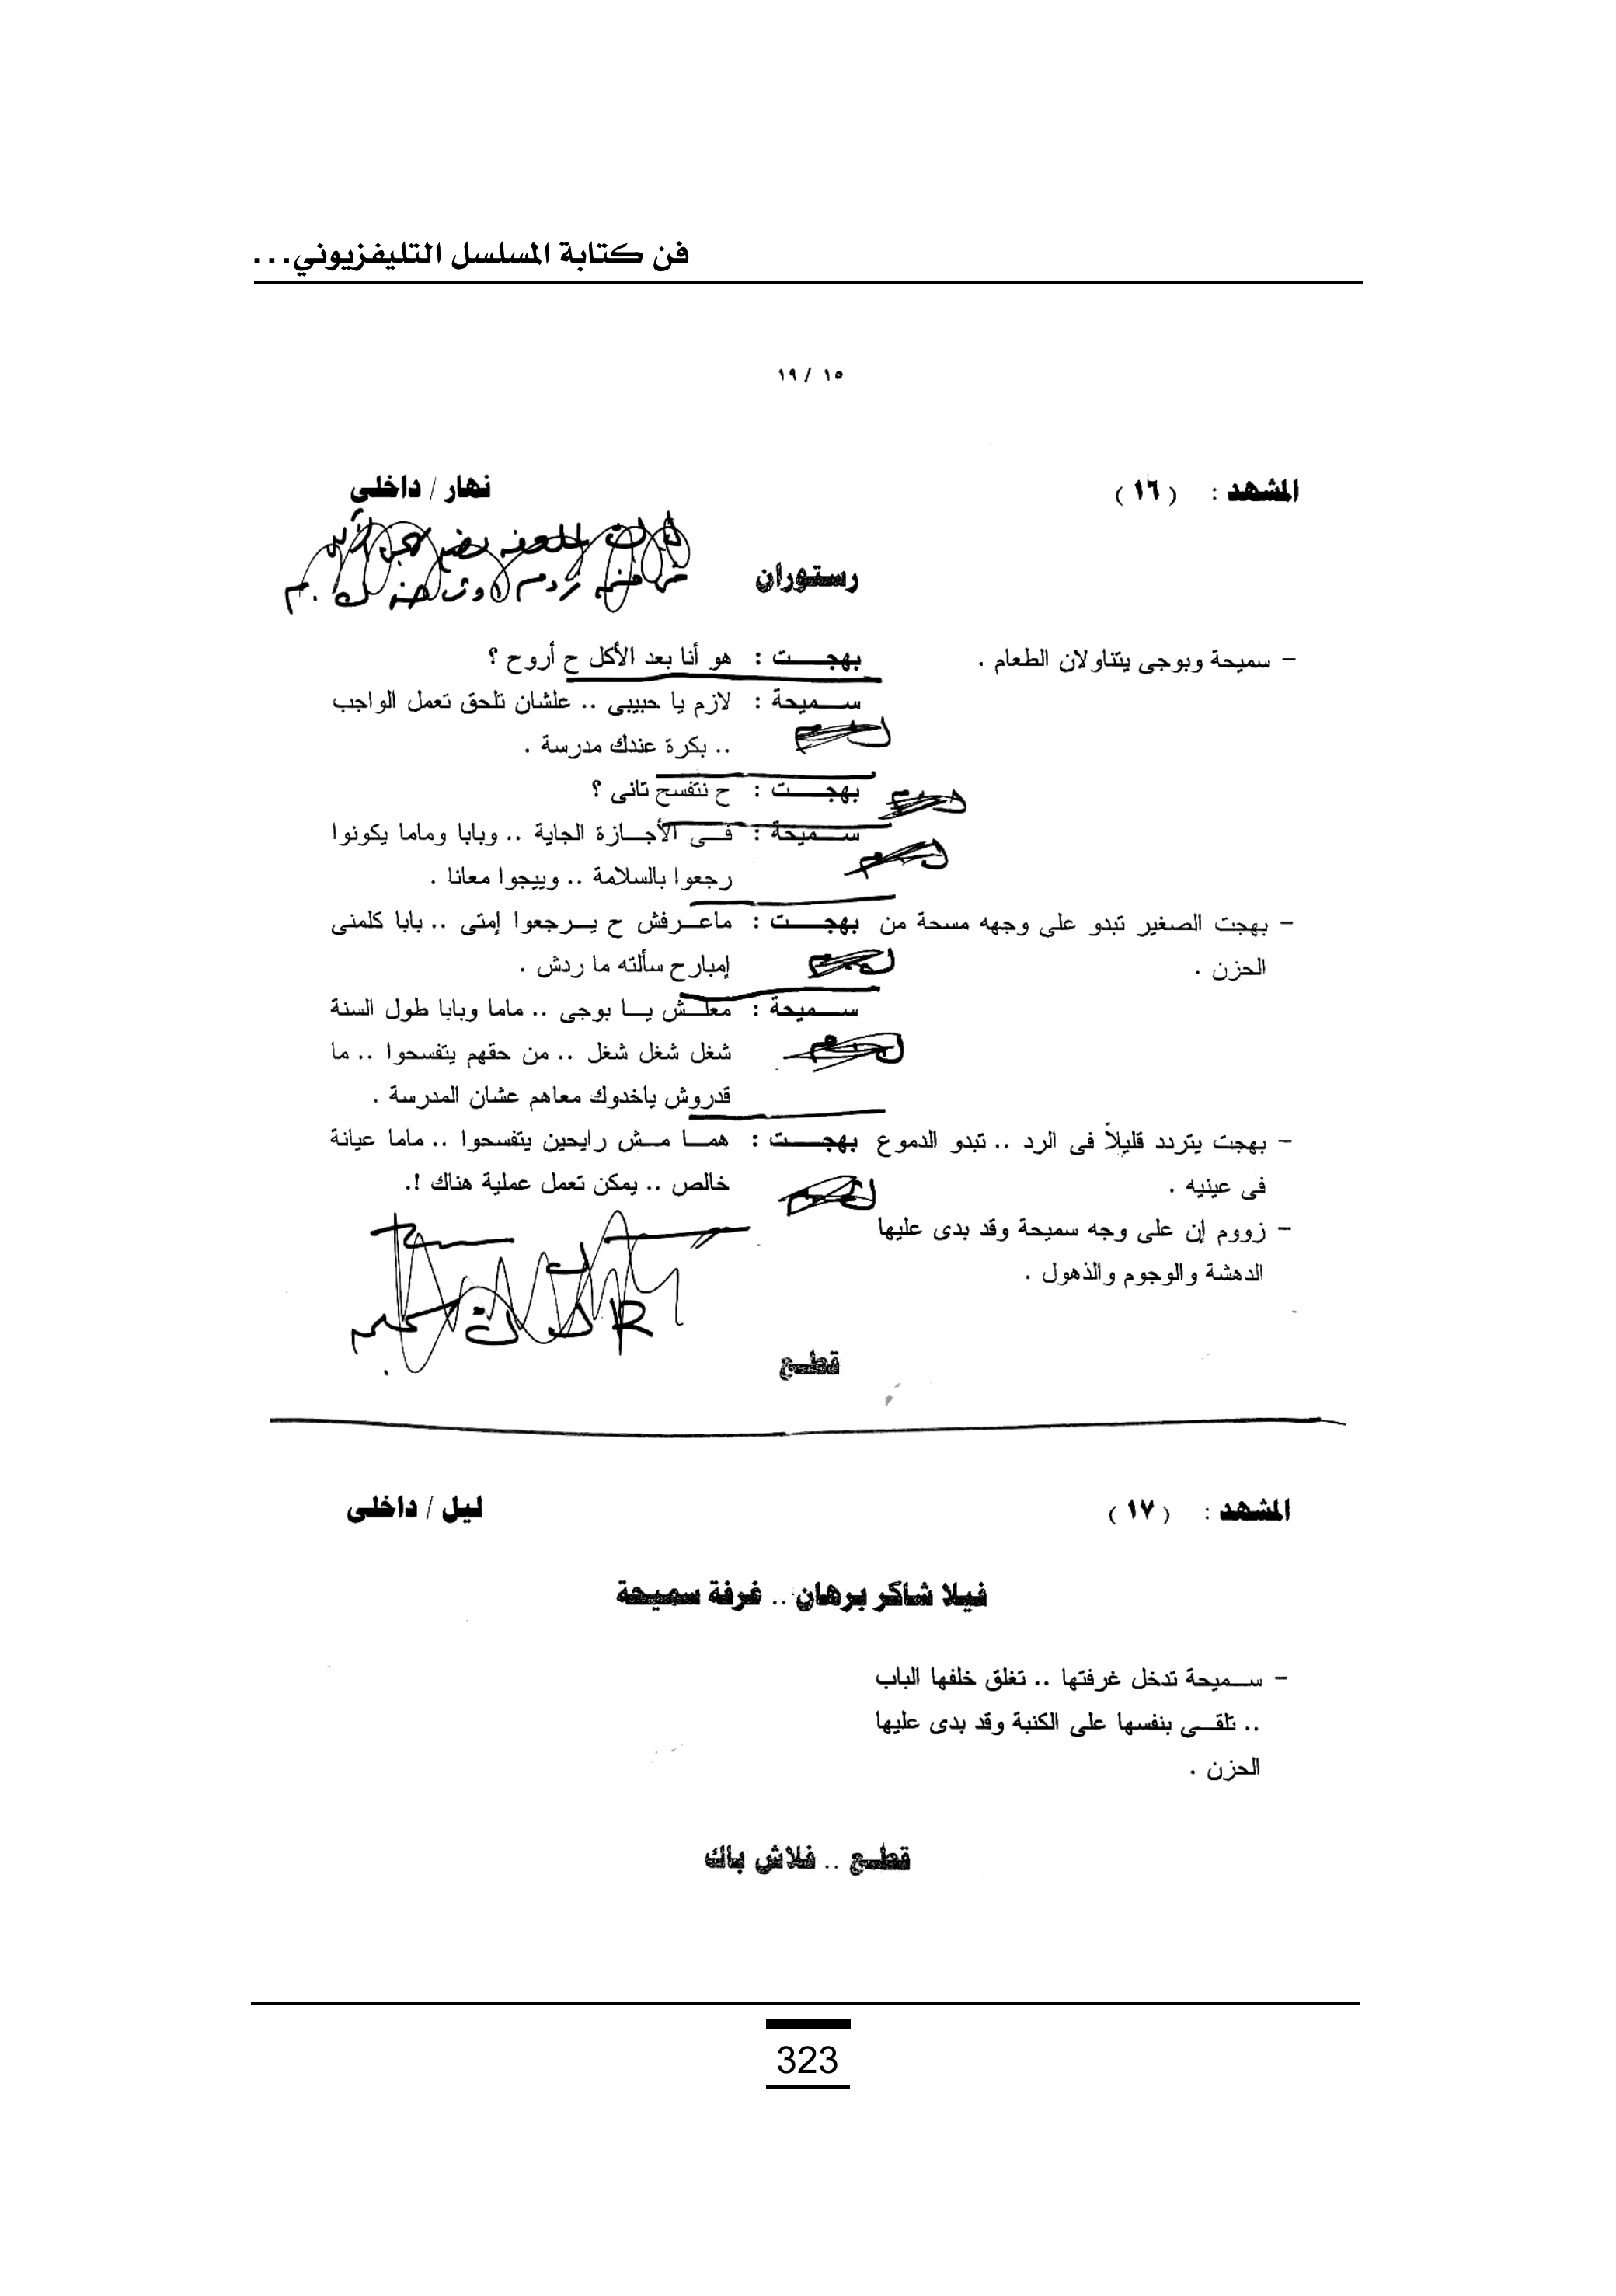 فن كتابة المسلسل التليفزيوني...
١٩/ ١٥
المشهد : (١٦) نهار / داخلى
رستوران
- سميحة وبوجى يتناولان الطعام . بهجـــت : هو أنا بعد الأكل ح أروح ؟
ســـميحة : لازم يا حبيبى .. علشان تلحق تعمل الواجب
.. بكرة عندك مدرسة .
بهجـــت : ح نتفسح تانى ؟
ســـميحة : فـــى الأجـــازة الجاية .. وبابا وماما يكونوا
رجعوا بالسلامة .. وييجوا معانا .
- بهجت الصغير تبدو على وجهه مسحة من بهجـــت : ماعـــرفش ح يـــرجعوا إمتى .. بابا كلمنى
الحزن . إمبارح سألته ما ردش .
ســـميحة : معلـــش يـــا بوجى .. ماما وبابا طول السنة
شغل شغل شغل .. من حقهم يتفسحوا .. ما
قدروش ياخدوك معاهم عشان المدرسة .
- بهجت يتردد قليلاً فى الرد .. تبدو الدموع بهجـــت : همـــا مـــش رايحين يتفسحوا .. ماما عيانة
فى عينيه . خالص .. يمكن تعمل عملية هناك !.
- زووم إن على وجه سميحة وقد بدى عليها
الدهشة والوجوم والذهول .
قطـــع
المشهد : (١٧) ليل / داخلى
فيلا شاكر برهان .. غرفة سميحة
- ســـميحة تدخل غرفتها .. تغلق خلفها الباب
.. تلقـــى بنفسها على الكنبة وقد بدى عليها
الحزن .
قطـــع .. فلاش باك
323